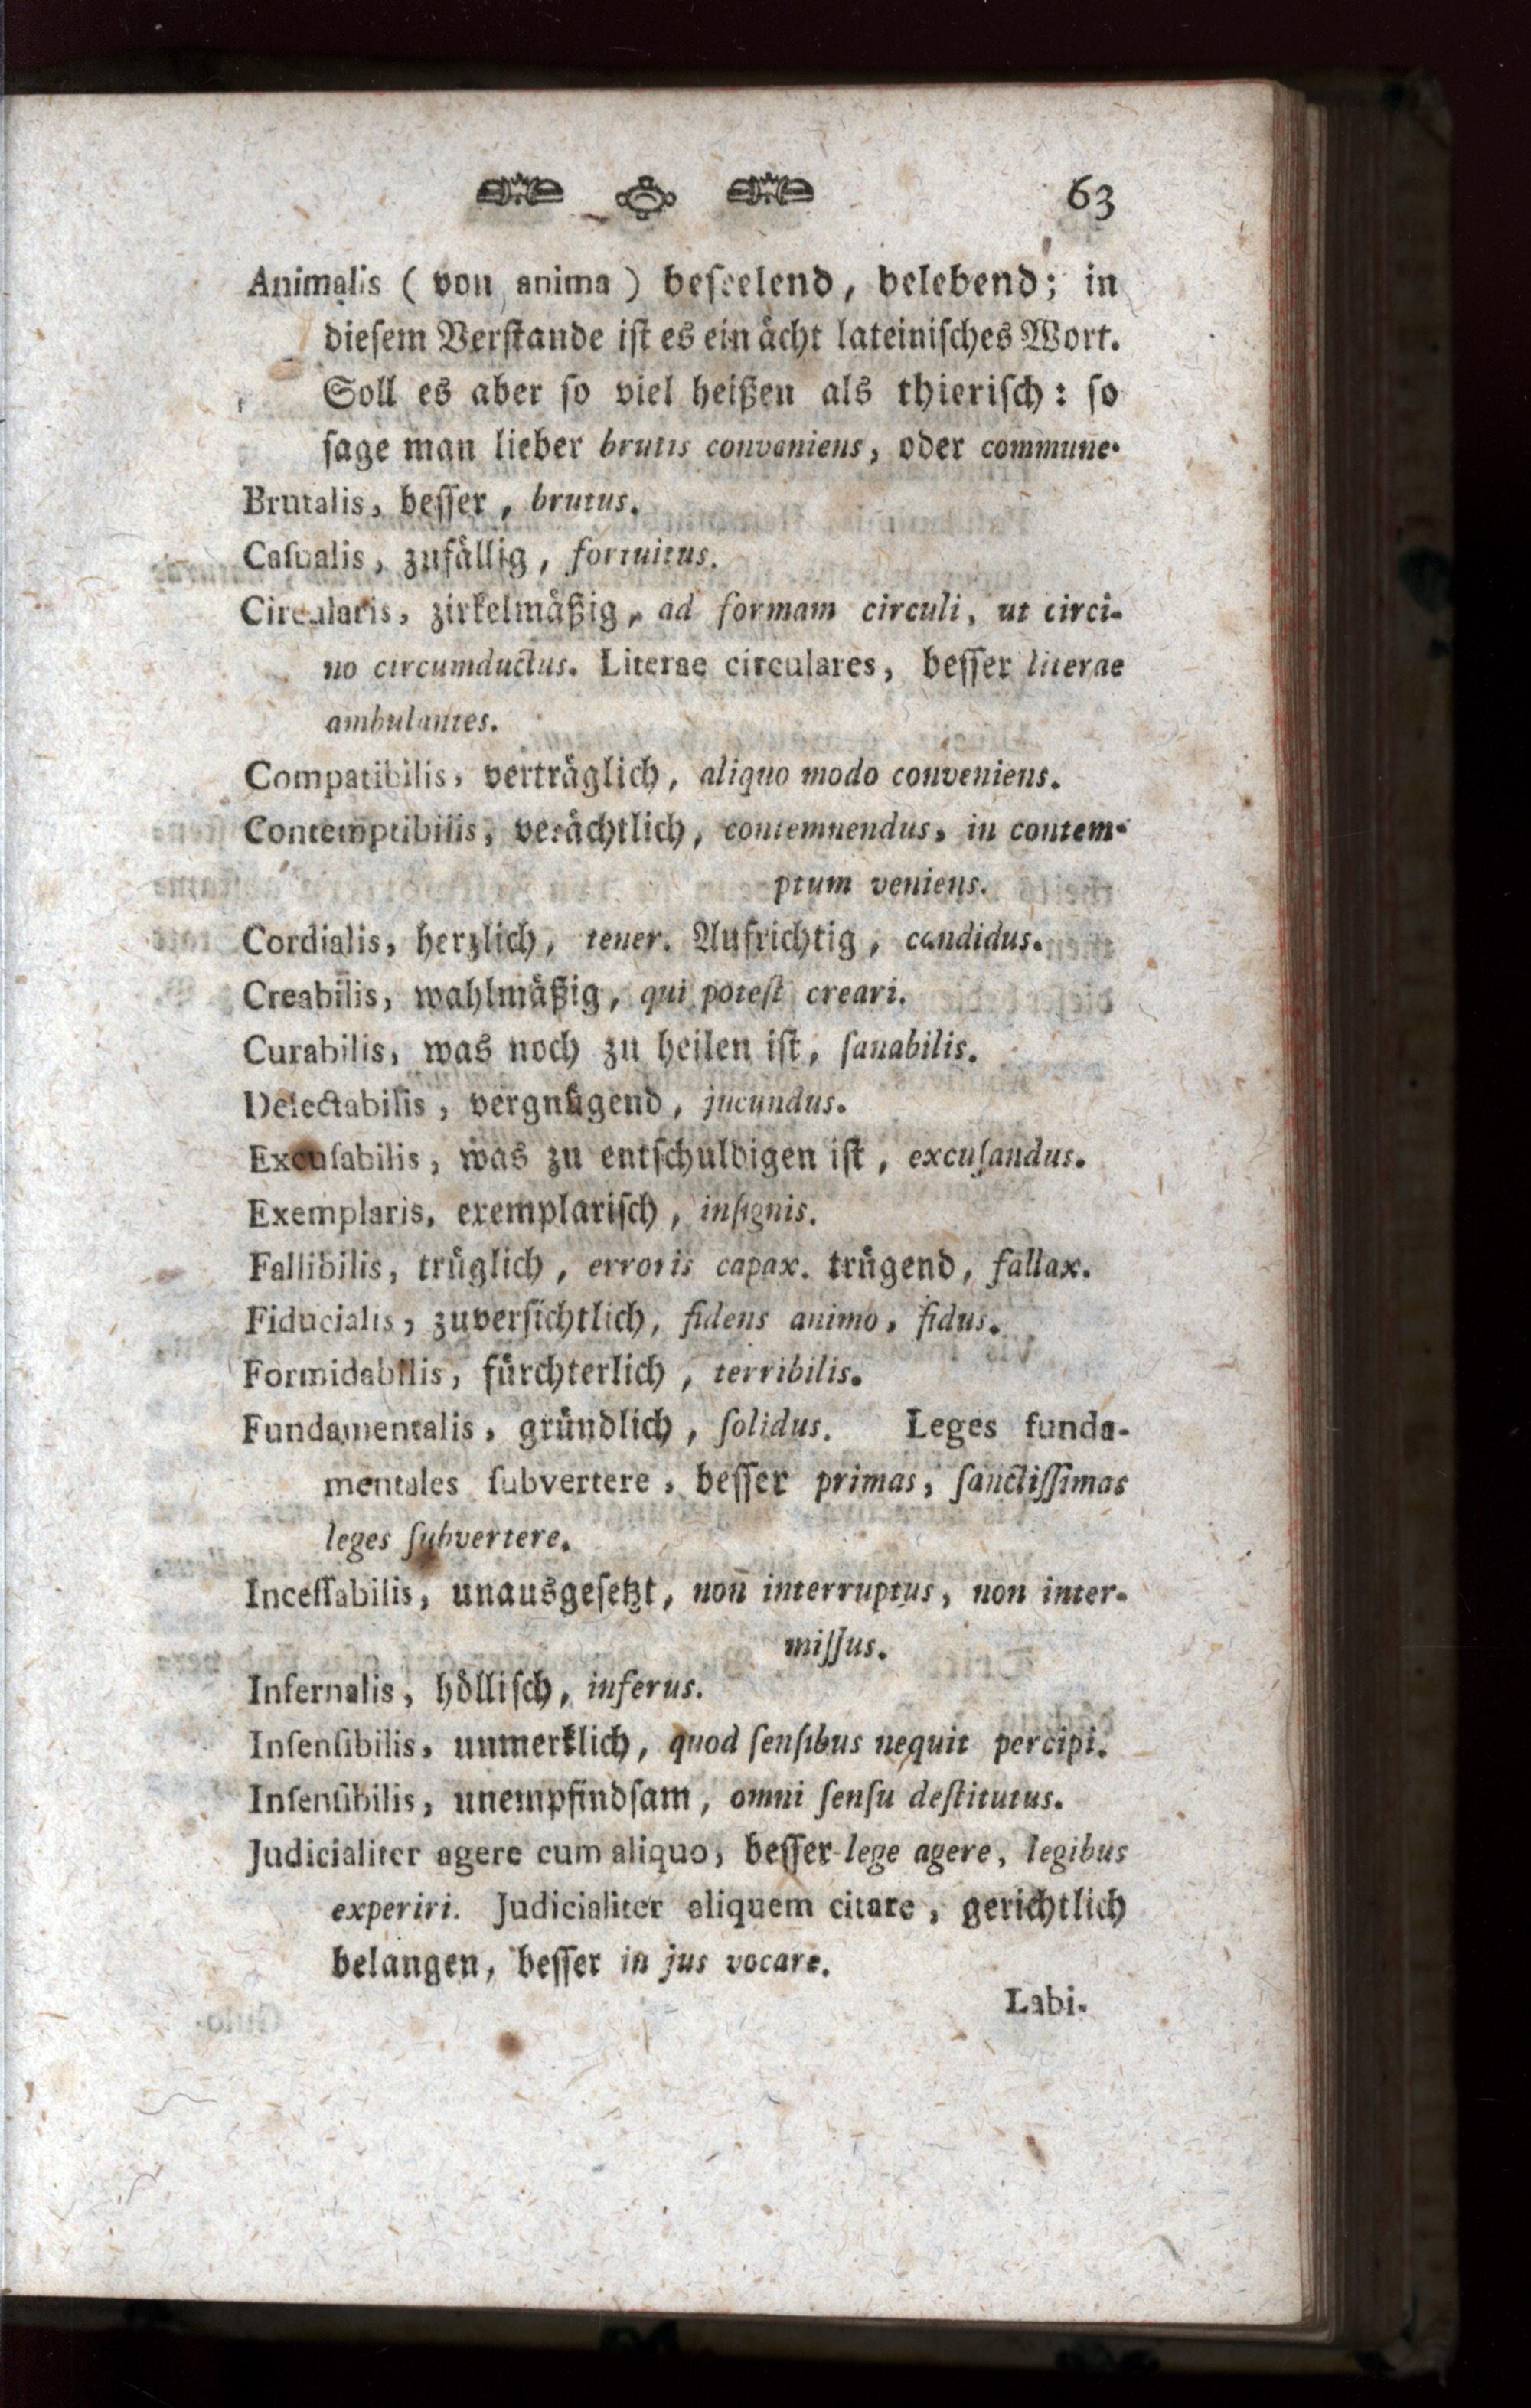 63
Animalis ( von anima ) beseelend, belebend; in
diesem Verstande ist es ein ächt lateinisches Wort.
Soll es aber so viel heißen als thierisch: so
sage man lieber brutis conveniens, oder commune.
Brutalis, besser, brutus.
Caſualis, zufällig, fortuitus.
Circularis, zirkelmäßig, ad formam circuli, ut circi-
no circumductus. Literae circulares, besser literae
ambulantes.
Compatibilis, verträglich, aliquo modo conveniens.
Contemptibilis, verächtlich, contemnendus, in contem-
ptum veniens.
Cordialis, herzlich, tener. Aufrichtig, candidus.
Creabilis, wahlmäßig, qui poteſt creari.
Curabilis, was noch zu heilen ist, ſanabilis.
Delectabilis, vergnügend, jucundus.
Excuſabilis, was zu entschuldigen ist, excuſandus.
Exemplaris, exemplarisch, inſignis.
Fallibilis, trüglich, erroris capax. trügend, fallax.
Fiducialis, zuversichtlich, fidens animo, fidus.
Formidabilis, fürchterlich, terribilis.
Fundamentalis, gründlich, ſolidus. Leges funda-
mentales ſubvertere, besser primas, ſanctiſſimas
leges ſubvertere.
Inceſſabilis, unausgesetzt, non interruptus, non inter-
miſſus.
Infernalis, höllisch, inferus.
Inſenſibilis, unmerklich, quod ſenſibus nequit percipi.
Inſenſibilis, unempfindsam, omni ſenſu deſtitutus.
Judicialiter agere cum aliquo, besser lege agere, legibus
experiri. Judicialiter aliquem citare, gerichtlich
belangen, besser in jus vocare.
Labi-